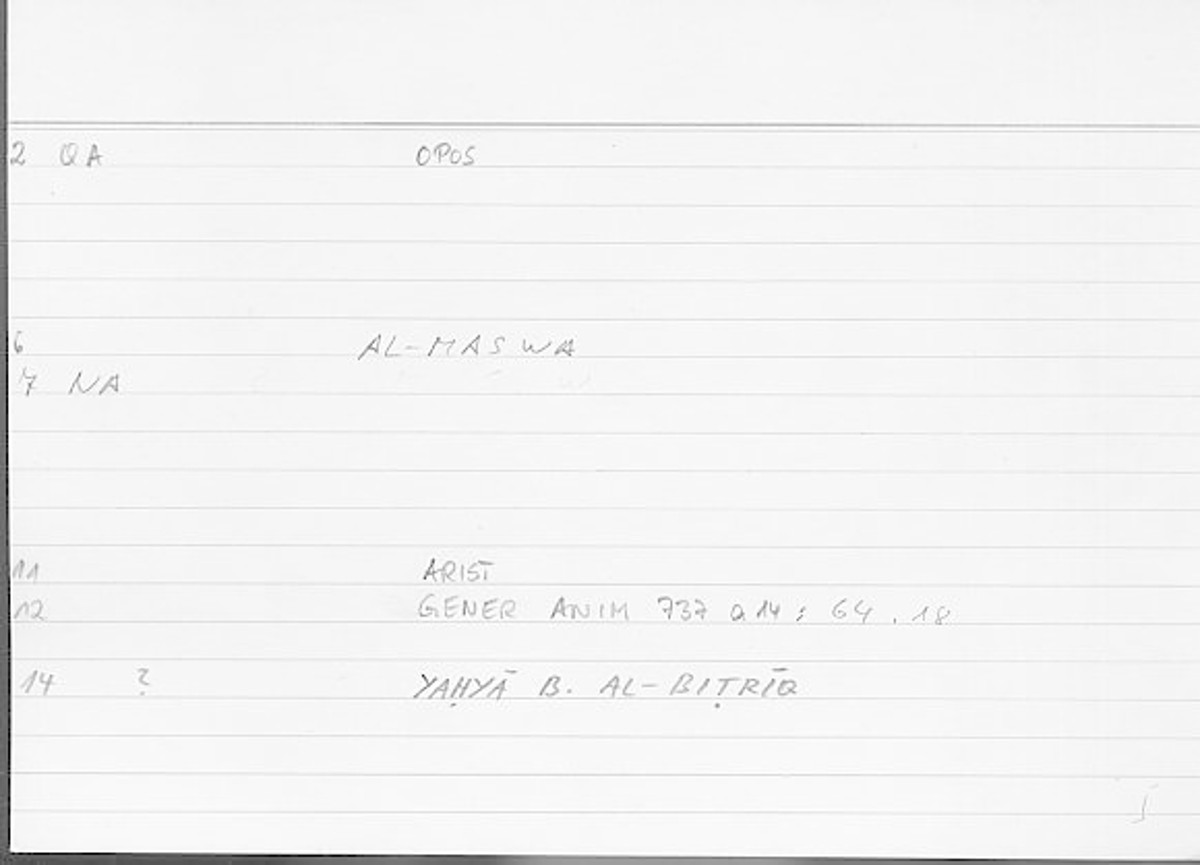 2 QA OPOS
6 AL-MASWA
7 NA
11 ARIST
12 GENER ANIM 737 a 14 ; 64 . 18
14 ? YAḤYĀ B. AL-BIṬRĪQ